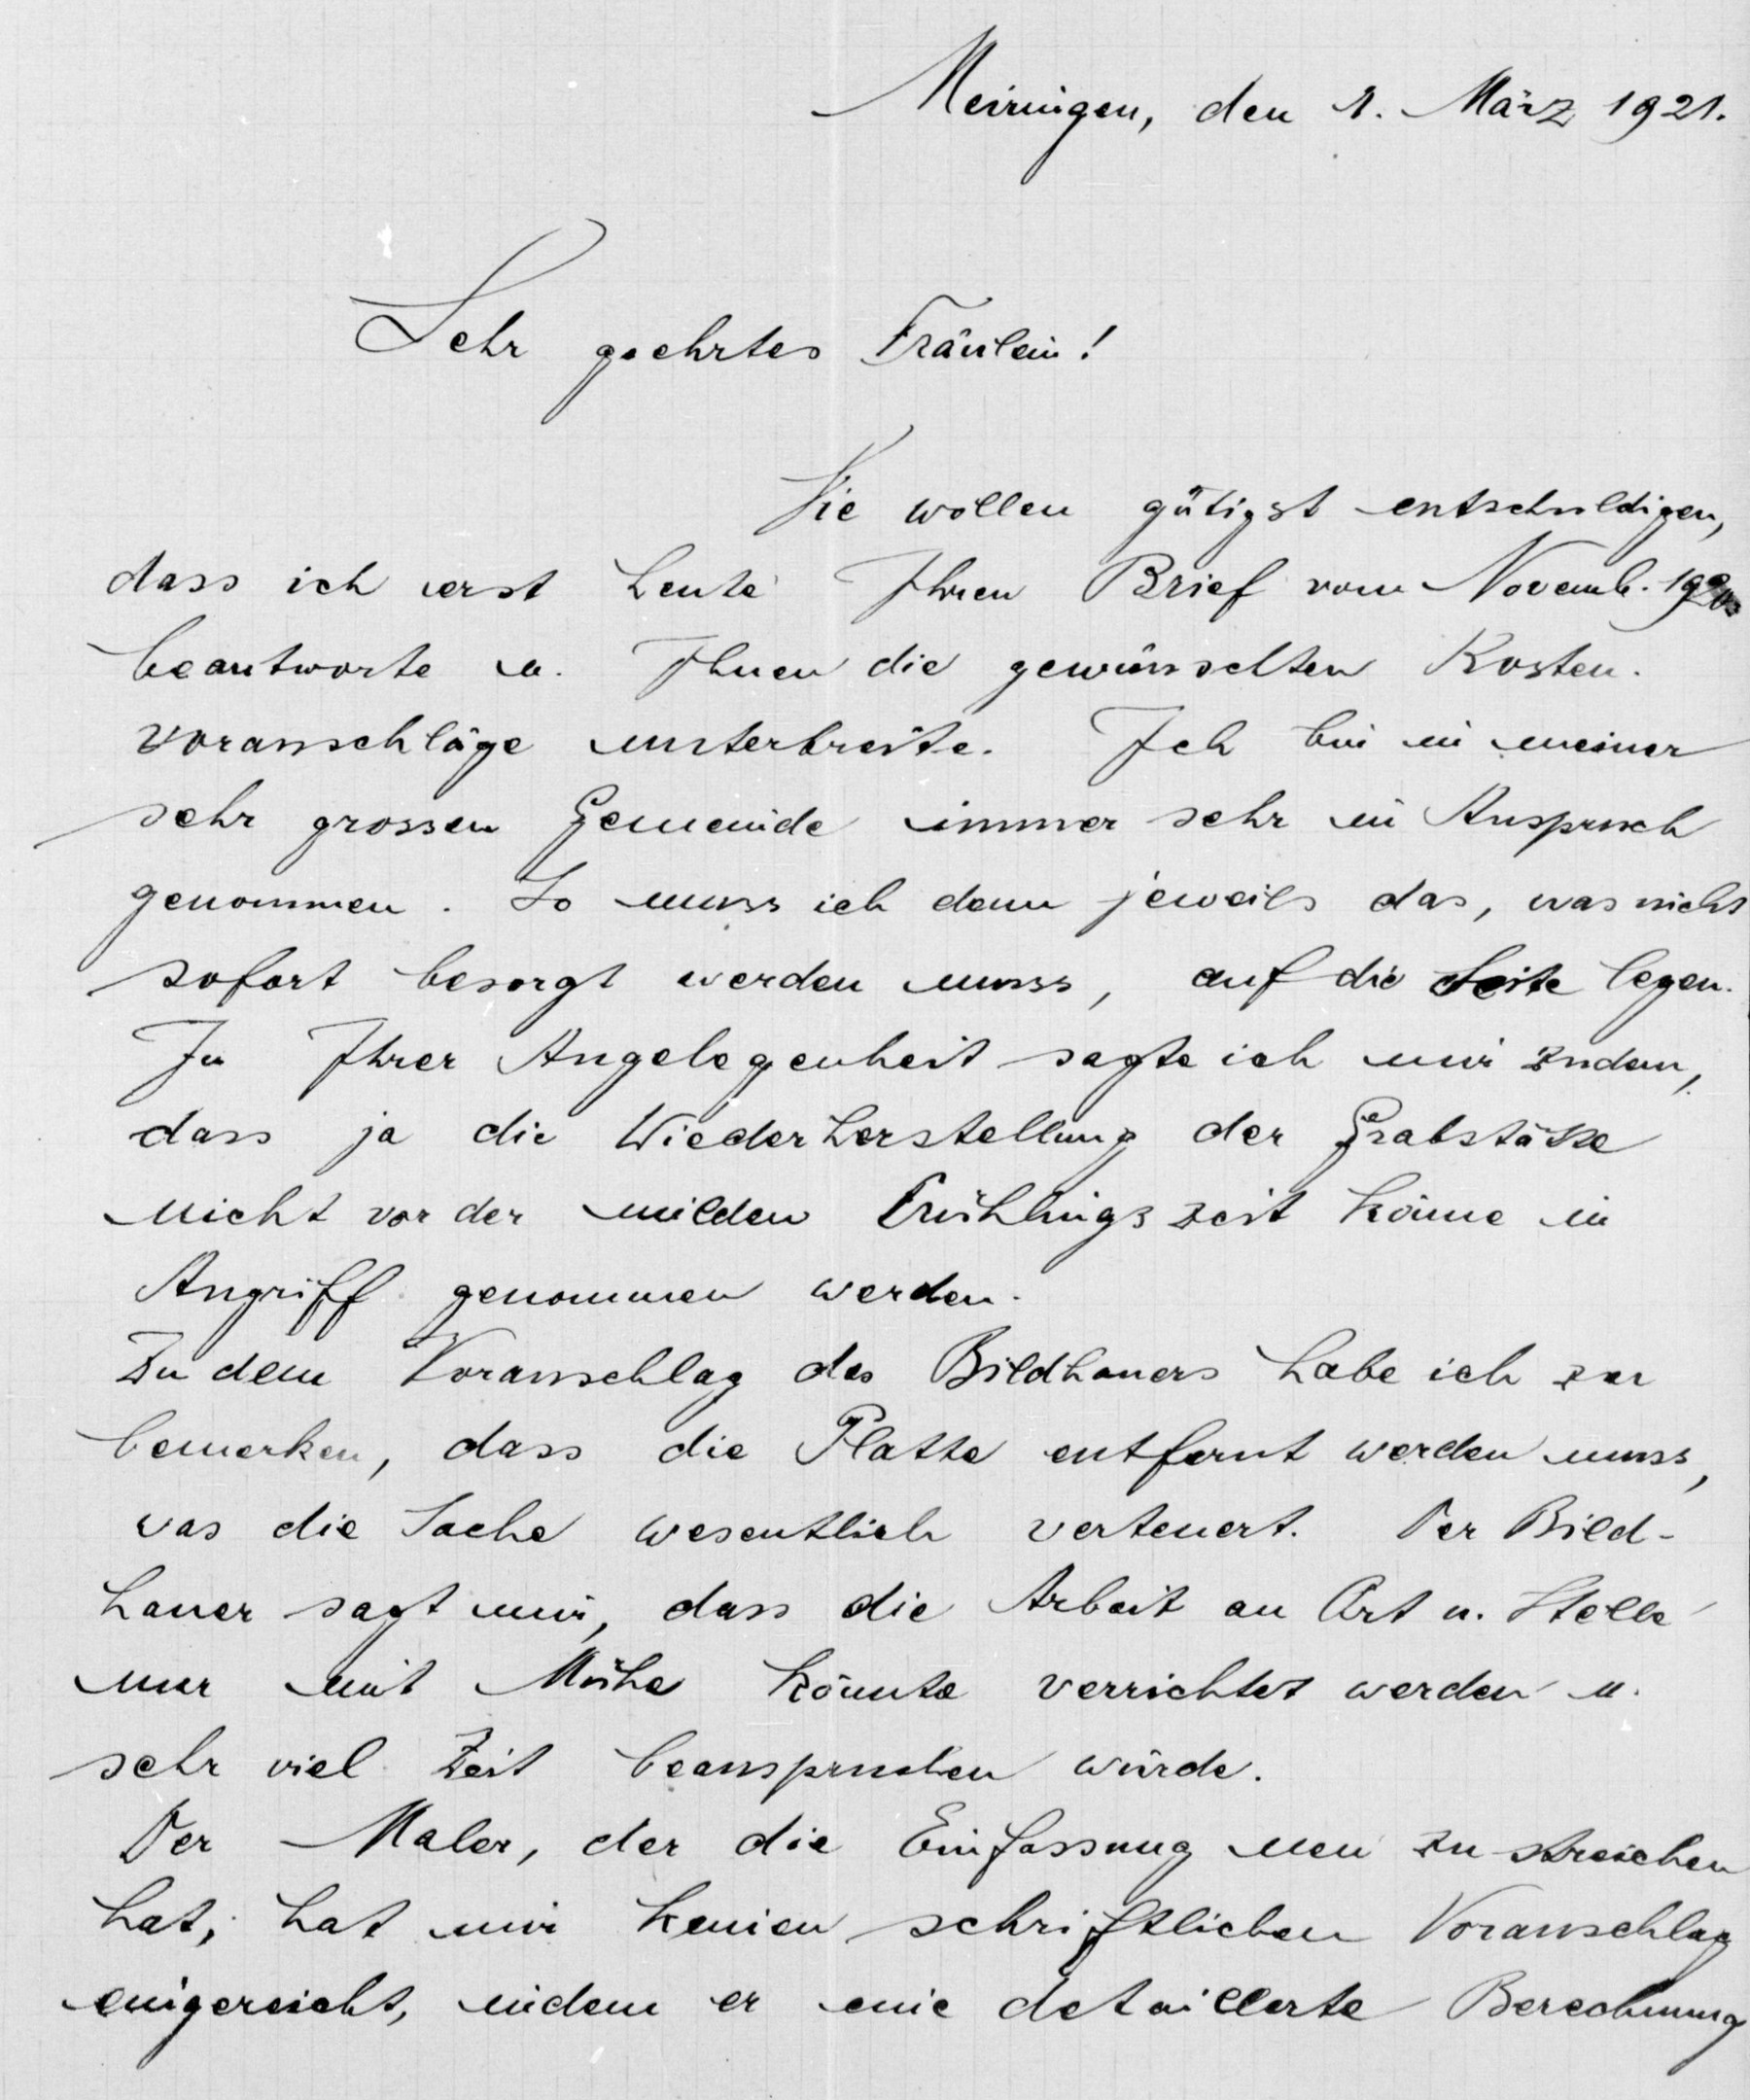 Meiringen, den 1. März 1921.
Sehr geehrtes Fräulein!
Sie wollen gütigst entschuldigen,
dass ich erst heute Ihren Brief vom Novemb. 1920
beantworte u. Ihnen die gewünschten Kosten-
voranschläge unterbreite. Ich bin in meiner
sehr grossen Gemeinde immer sehr in Anspruch
genommen. So muss ich denn jeweils das, was nicht
sofort besorgt werden muss, auf die Seite legen.
In Ihrer Angelegenheit sagte ich mir zudem,
dass ja die Wiederherstellung der Grabstätte
nicht vor der milden Frühlingszeit könne in
Angriff genommen werden.
Zu dem Voranschlag des Bildhauers habe ich zu
bemerken, dass die Platte entfernt werden muss,
was die Sache wesentlich verteuert. Der Bild-
hauer sagt mir, dass die Arbeit an Ort u. Stelle
nur mit Mühe könnte verrichtet werden u.
sehr viel Zeit beanspruchen würde.
Der Maler, der die Einfassung neu zu streichen
hat, hat mir keinen schriftlichen Voranschlag
eingereicht, indem er eine detaillerte Berechnung